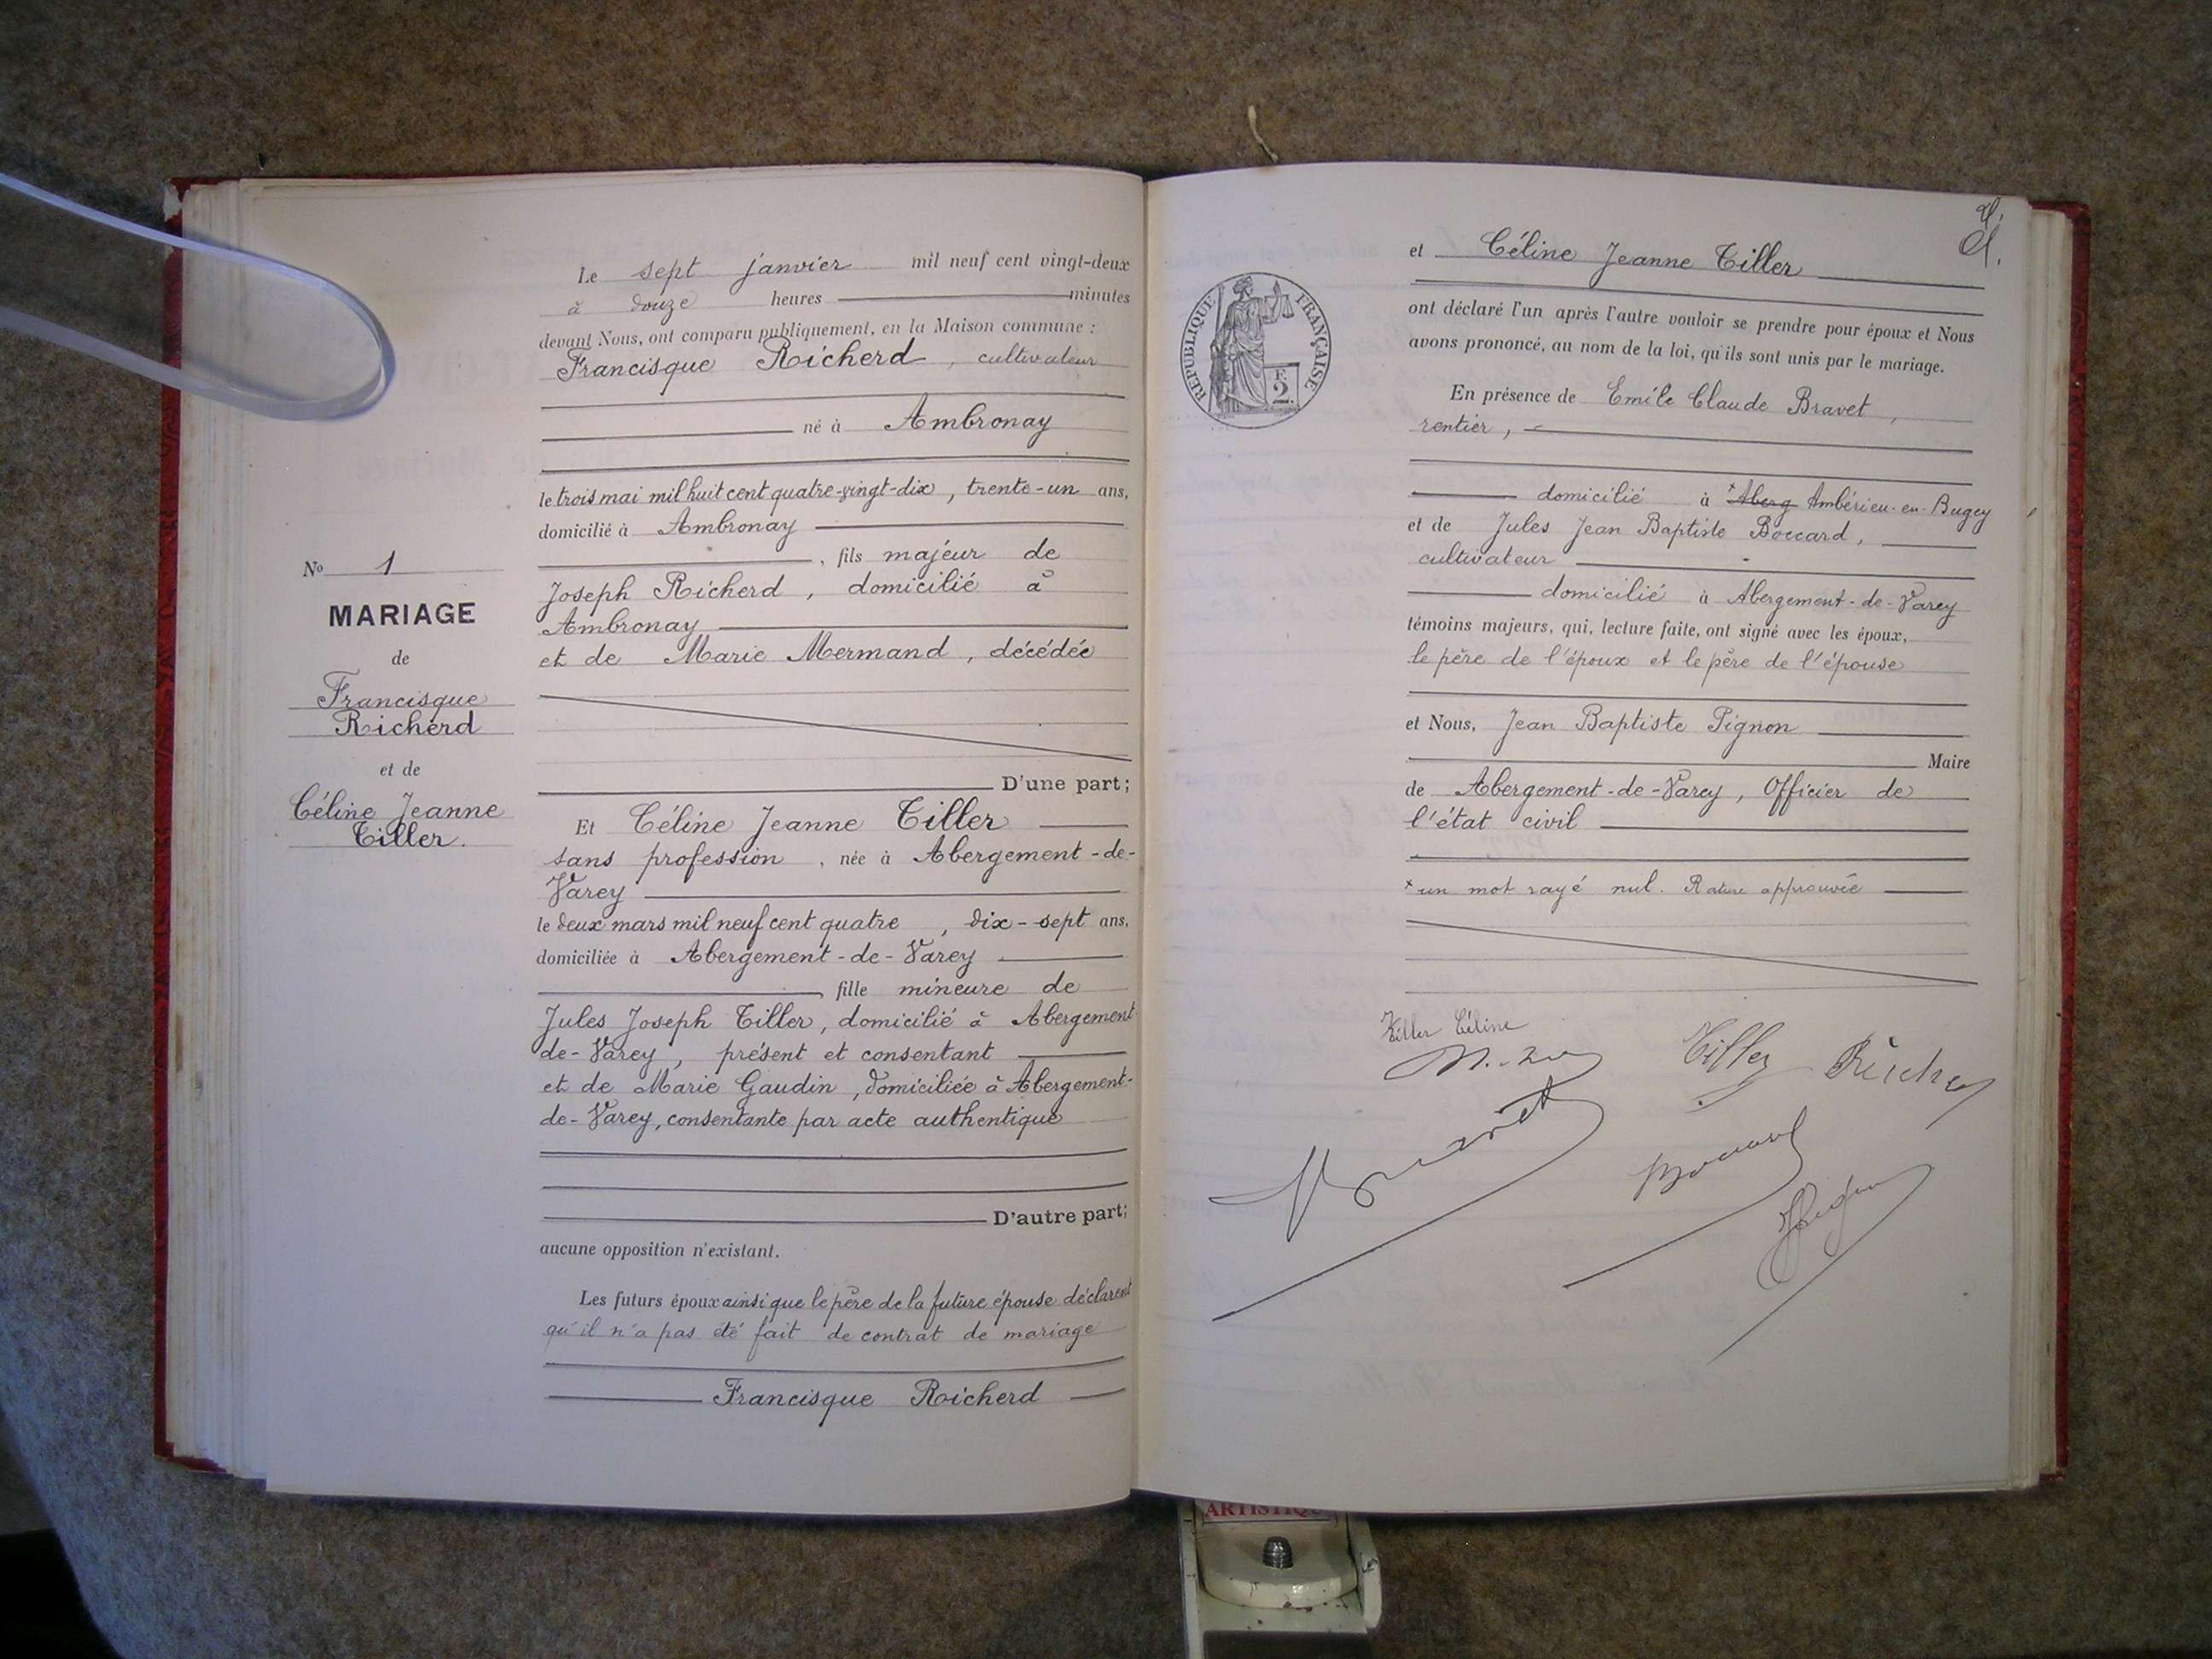 Le sept janvier mil neuf cent vingt-deux
à douze heures minutes
devant Nous, ont comparu publiquement, en la Maison commune :
Francisque Richerd, cultivateur
né à Ambronay
le trois mai mil huit cent quatre-vingt-dix, trente-un ans,
domicilié à Ambronay
, fils majeur de
Joseph Richerd, domicilié à
Ambronay
et de Marie Mermand, décédée
D'une part;
Et Céline Jeanne Tiller
sans profession, née à Abergement-de-
Varey
le deux mars mil neuf cent quatre, dix-sept ans,
domiciliée à Abergement-de-Varey
, fille mineure de
Jules Joseph Tiller, domicilié à Abergement-
de-Varey, présent et consentant
et de Marie Gaudin, domiciliée à Abergement-
de-Varey, consentante par acte authentique
D'autre part;
aucune opposition n'existant.
Les futurs époux ainsi que le père de la future épouse déclarent
qu'il n'a pas été fait de contrat de mariage
Francisque Richerd
No 1
MARIAGE
de
Francisque
Richerd
et de
Céline Jeanne
Tiller.
RÉPUBLIQUE FRANÇAISE
F.
2.
et Céline Jeanne Tiller
ont déclaré l'un après l'autre vouloir se prendre pour époux et Nous
avons prononcé, au nom de la loi, qu'ils sont unis par le mariage.
En présence de Emile Claude Bravet,
rentier,
domicilié à × Aberg Ambérieu-en-Bugey
et de Jules Jean Baptiste Boccard,
cultivateur
domicilié à Abergement-de-Varey
témoins majeurs, qui, lecture faite, ont signé avec les époux,
le père de l'époux et le père de l'épouse
et Nous, Jean Baptiste Pignon
Maire
de Abergement-de-Varey, Officier de
l'état civil
× un mot rayé nul. Rature approuvée
Tiller Céline
Tiller
Bravet
Boccard
Pignon
ARTISTIQUE